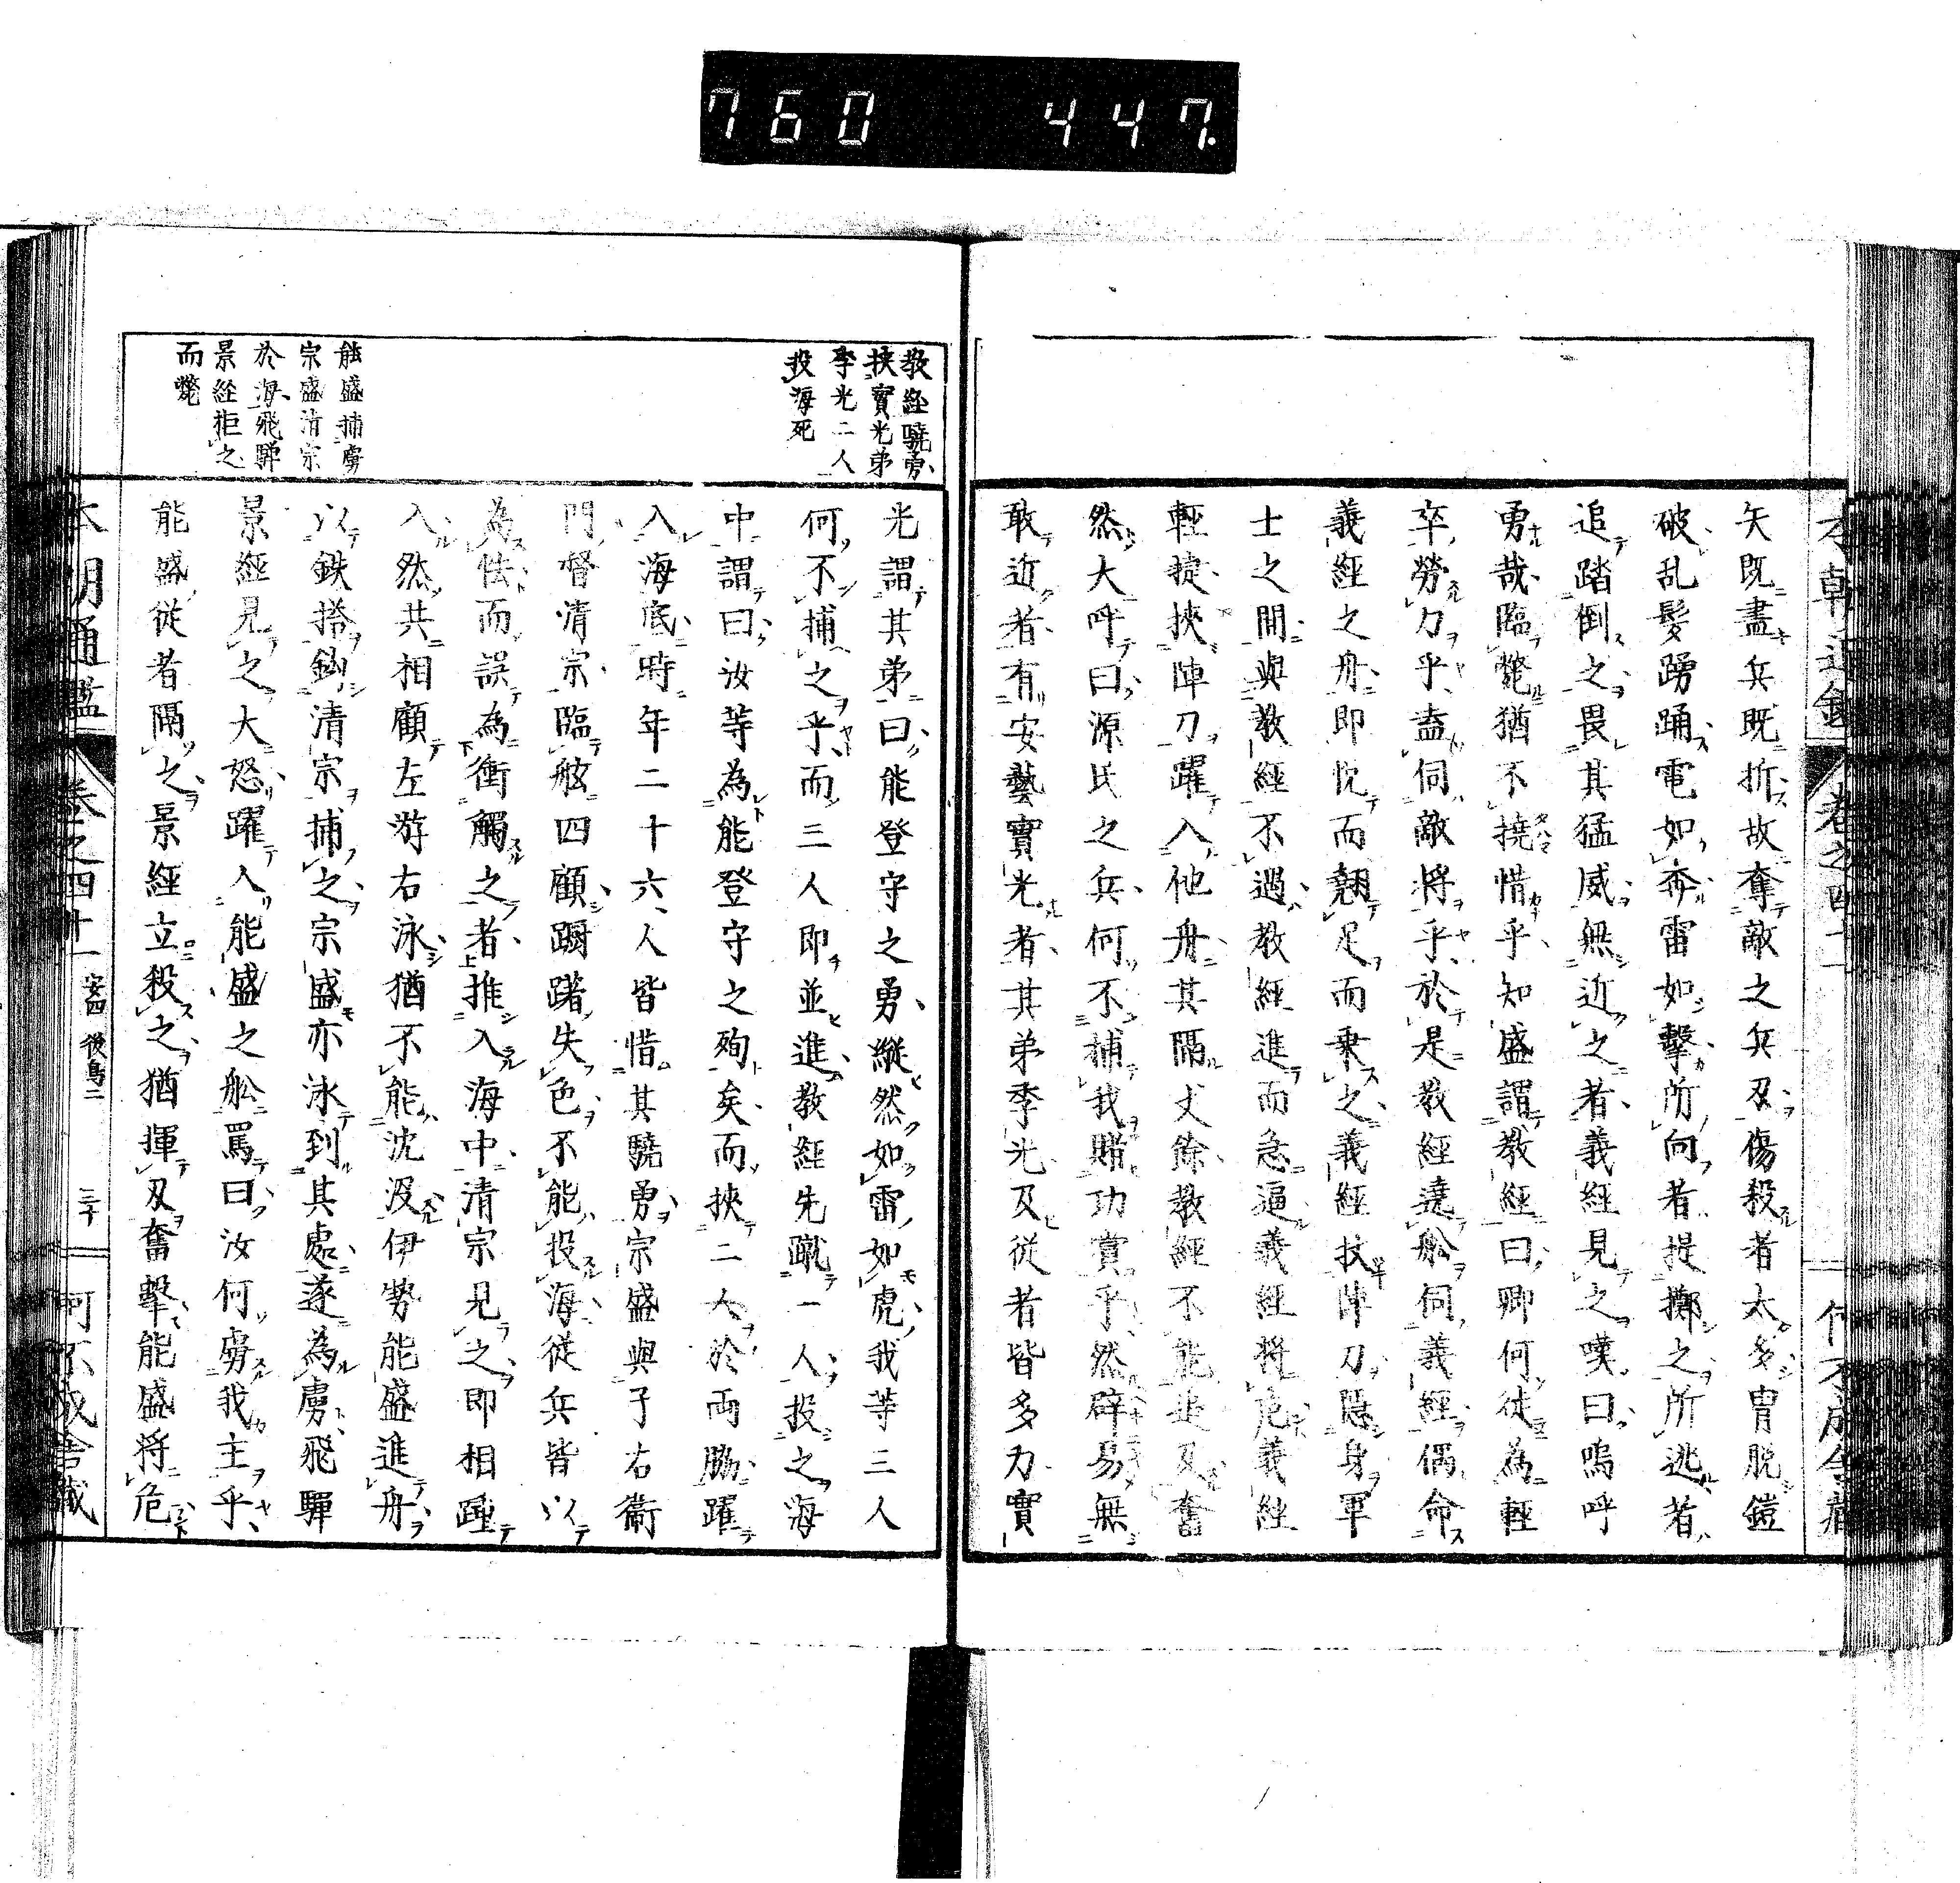 760 447.
矢既盡兵既折故奪敵之兵刃傷殺者太多冑脱鎧
破乱髪踴踊電如奔雷如擊所向者提擲之所逃者
追踏倒之畏其猛威無近之者義經見之嘆曰嗚呼
勇哉臨斃猶不撓惜乎知盛謂教經曰卿何徒為輕
卒勞力乎盍伺敵將乎於是教經遶舩伺義經偶命
義經之舟即悅而翹足而乗之義經扙陣刀隠身軍
士之間與教經不遇教經進而急逼義經將危義經
輕捷挾陣刀躍入他舟其隔丈餘教經不能追及奮
然大呼曰源氏之兵何不捕我賭功賞乎然辟易無
敢近者有安藝實光者其弟季光及従者皆多力實
教經驍勇
挾實光弟
季光二人
投海死
能盛捕虜
宗盛清宗
於海飛騨
景經拒之
而斃
光謂其弟曰能登守之勇縦然如雷如虎我等三人
何不捕之乎而三人即並進教經先蹴一人投之海
中謂曰汝等為能登守之殉矣而挾二人於両脇躍
入海底時年二十六人皆惜其驍勇宗盛與子右衞
門督清宗臨舷四顧躑躇失色不能投海従兵皆以
為怯而誤為衝觸之者推入海中清宗見之即相踵
入然共相顧左游右泳猶不能沈沒伊勢能盛進舟
以鉄搭鈎清宗捕之宗盛亦泳到其處遂為虜飛騨
景經見之大怒躍入能盛之舩罵曰汝何虜我主乎
能盛従者隔之景經立殺之猶揮刄奮擊能盛将危
本朝通鑑 卷之四十一 安四 後鳥二 三十